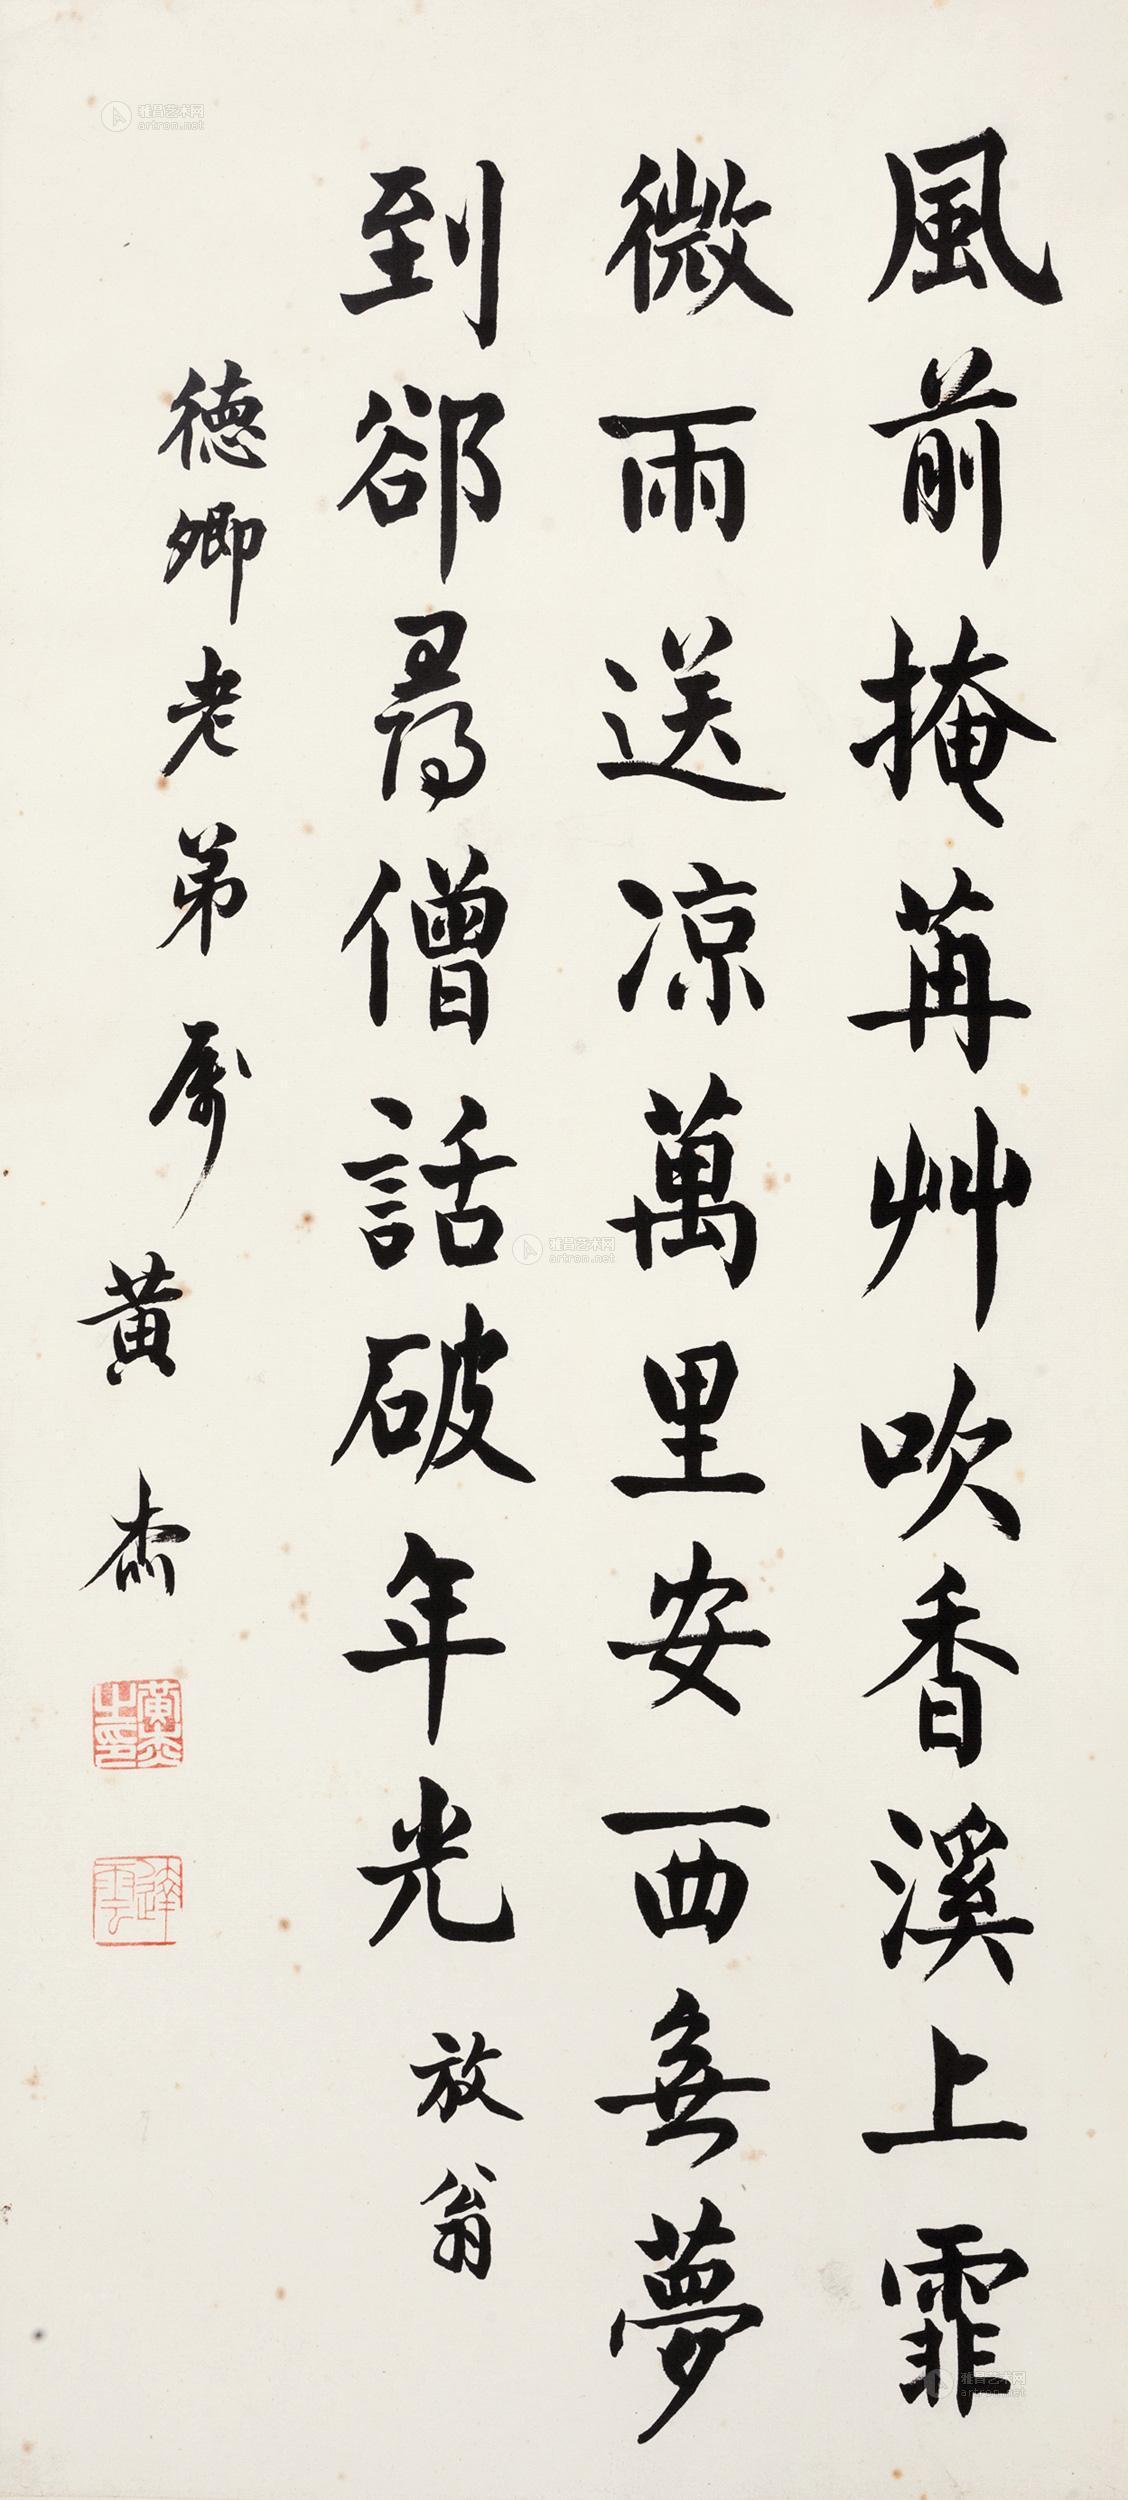 風前掩苒艸吹香溪上霏
微雨送凉萬里安西無夢
到卻尋僧話破年光
放翁
德卿老弟屬
黃杰
黃杰之印
達雲
雅昌艺术网
artron.net
雅昌艺术网
artron.net
雅昌艺术网
artron.net